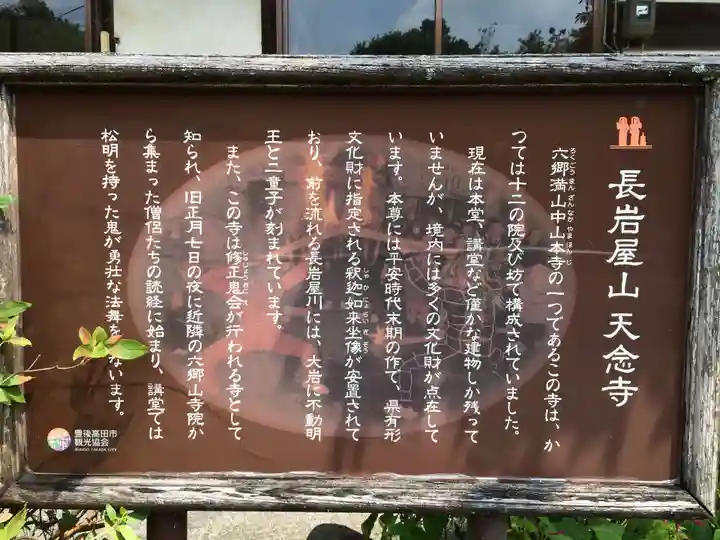 長岩屋山 天念寺
六郷満山中山本寺の一つであるこの寺は、か
ろくごうまんざんなかやまほんじ
つては十二の院及び坊で構成されていました。
現在は本堂、講堂など僅かな建物しか残って
いませんが、境内には多くの文化財が点在して
います。本尊には平安時代末期の作で、県有形
文化財に指定される釈迦如来坐像が安置されて
しゃかにょらいざぞう
おり、前を流れる長岩屋川には、大岩に不動明
王と二童子が刻まれています。
また、この寺は修正鬼会が行われる寺として
しゅじょうおにえ
知られ、旧正月七日の夜に近隣の六郷山寺院か
ら集まった僧侶たちの読経に始まり、講堂では
松明を持った鬼が勇壮な法舞を ないます。
豊後高田市
観光協会
BUNGO TAKADA CITY